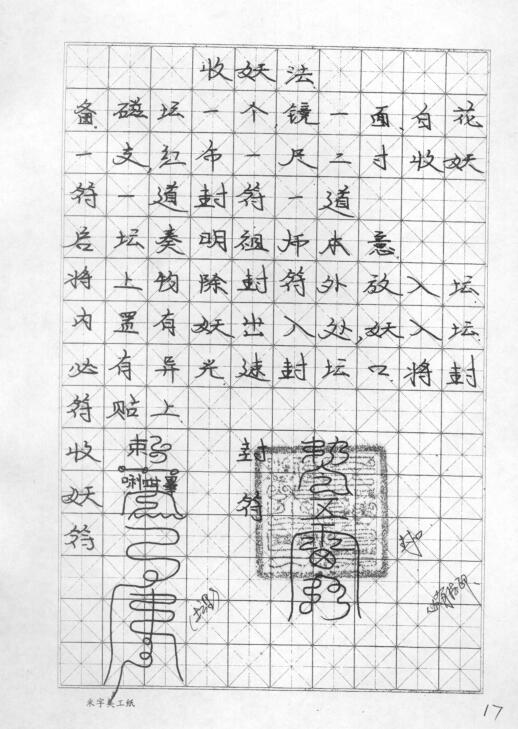 收妖法
备磁坛一个,镜一面,白花
一支,红布一尺二寸收妖
符一道封符一道
后坛奏明祖师本意
将上物除封符外放入坛
内置有妖出入处,妖入坛
必有异光速封坛口将封
符贴上
收妖符
封符
米字美工纸
17